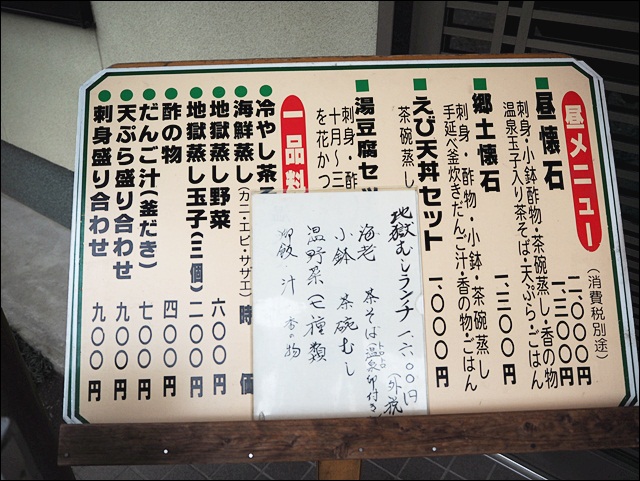 昼メニュー
(消費税別途)
■昼懐石 二、000円
刺身・小鉢酢物・茶碗蒸し・香の物 一、三00円
温泉玉子入り茶そば・天ぷら・ごはん
■郷土懐石 一、二00円
刺身・酢物・小鉢・茶碗蒸し
手延べ釜炊きだんご汁・香の物・ごはん
■えび天丼セット 一、000円
茶碗蒸し
■湯豆腐セッ
刺身・酢
十月〜三
を花かつ
一品料
●冷やし茶そ
●海鮮蒸し(カニ・エビ・サザエ) 時価
●地獄蒸し野菜 六00円
●地獄蒸し玉子(三個) 二00円
●酢の物 四00円
●だんご汁(釜だき) 七00円
●天ぷら盛り合わせ 九00円
●刺身盛り合わせ 九00円
地獄むしランチ 一、六00円
(外税)
海老 茶そば(温泉卵付き)
小鉢 茶碗むし
温野菜(七種類)
御飯・汁・香の物